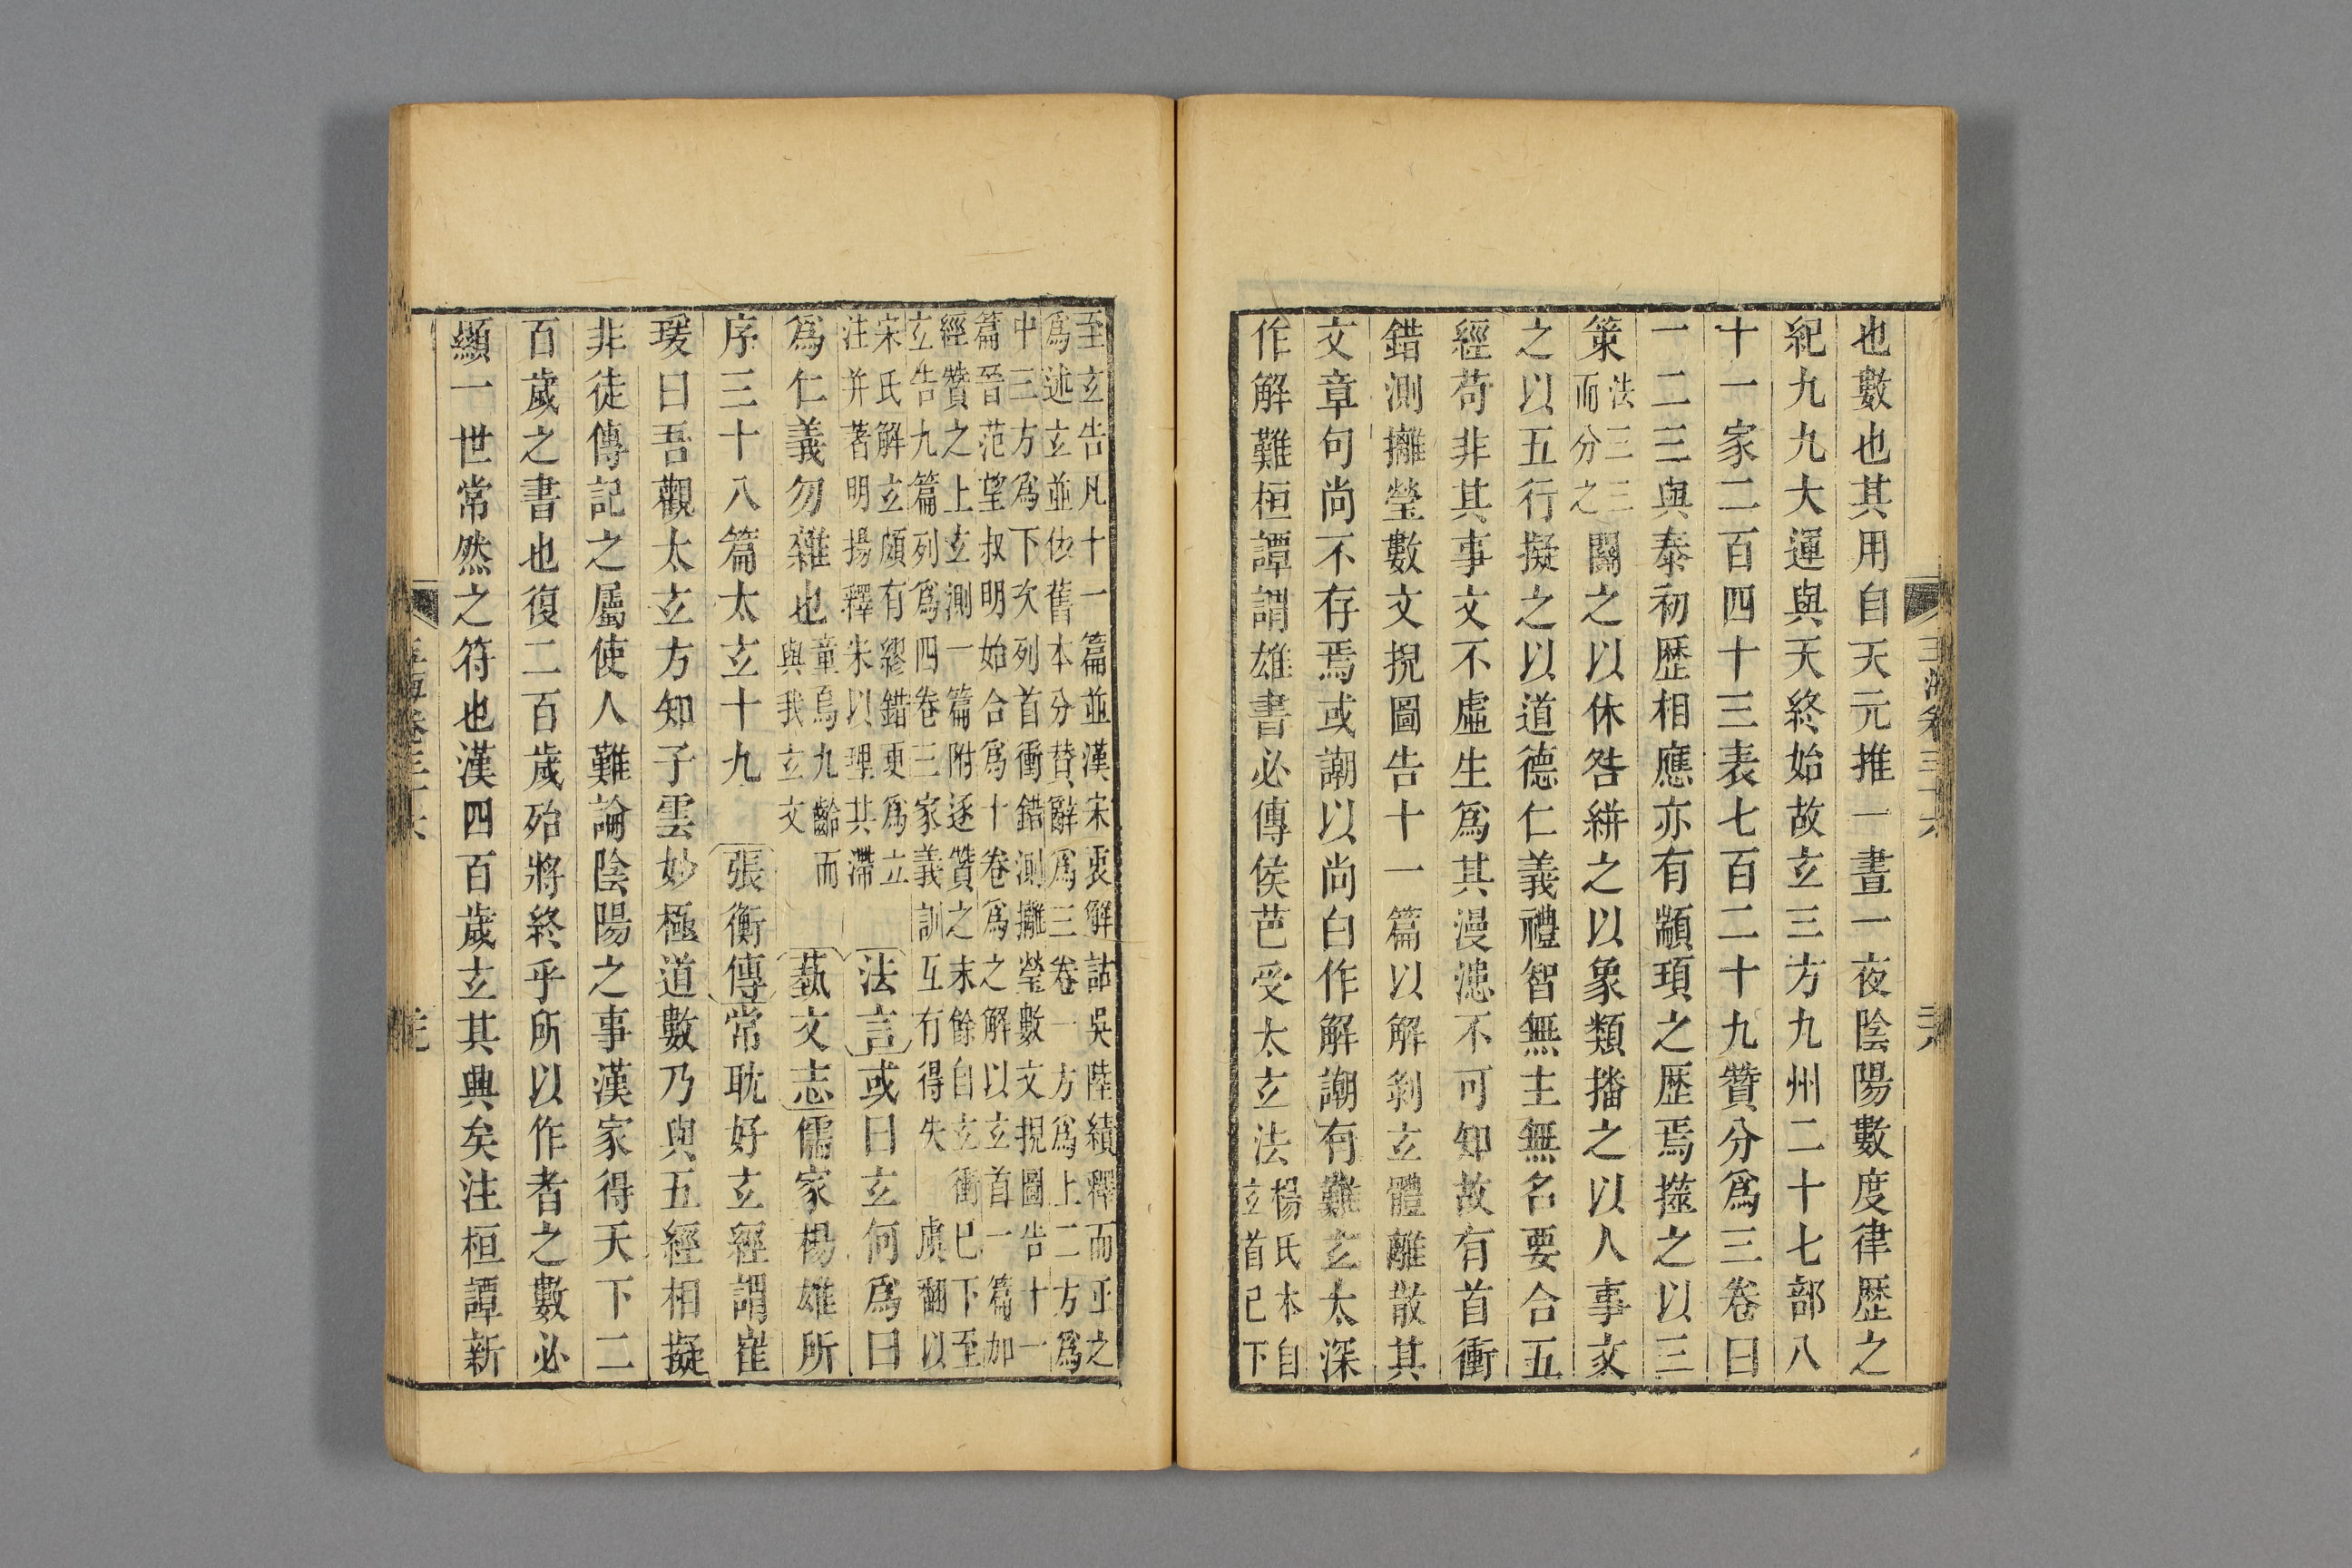 也數也其用自天元推一晝一夜陰陽數度律歷之
紀九九大運與天終始故玄三方九州二十七部八
十一家二百四十三表七百二十九贊分爲三卷曰
一二三與泰初歷相應亦有顓頊之歷焉揲之以三
策
法三三
而分之
關之以休咎絣之以象類播之以人事文
之以五行擬之以道德仁義禮智無主無名要合五
經苟非其事文不虛生爲其漫漶不可知故有首衝
錯測攡瑩數文掜圖告十一篇以解剝玄體離散其
文章句尚不存焉或謿以尚白作解謿有難玄太深
作解難桓譚謂雄書必傳侯芭受太玄法
楊氏本自
玄首已下
至玄告凡十一篇並漢宋衷解詁吳陸績釋而正之
爲述玄並依舊本分贊辭爲三卷一方爲上二方爲
中三方爲下次列首衝錯測攡瑩數文掜圖告十一
篇晉范望叔明始合爲十卷爲之解以玄首一篇加
經贊之上玄測一篇附逐贊之末餘自玄衝已下至
玄告九篇列爲四卷三家義訓互有得失 虞翻以
宋氏解玄頗有繆錯更爲立
注并著明揚釋朱以理其滯
法言或曰玄何爲曰
爲仁義勿雜也
童烏九齡而
與我玄文
藝文志儒家楊雄所
序三十八篇太玄十九 張衡傳常耽好玄經謂崔
瑗曰吾觀太玄方知子雲妙極道數乃與五經相擬
非徒傳記之屬使人難論陰陽之事漢家得天下二
百歲之書也復二百歲殆將終乎所以作者之數必
顯一世常然之符也漢四百歲玄其興矣注桓譚新